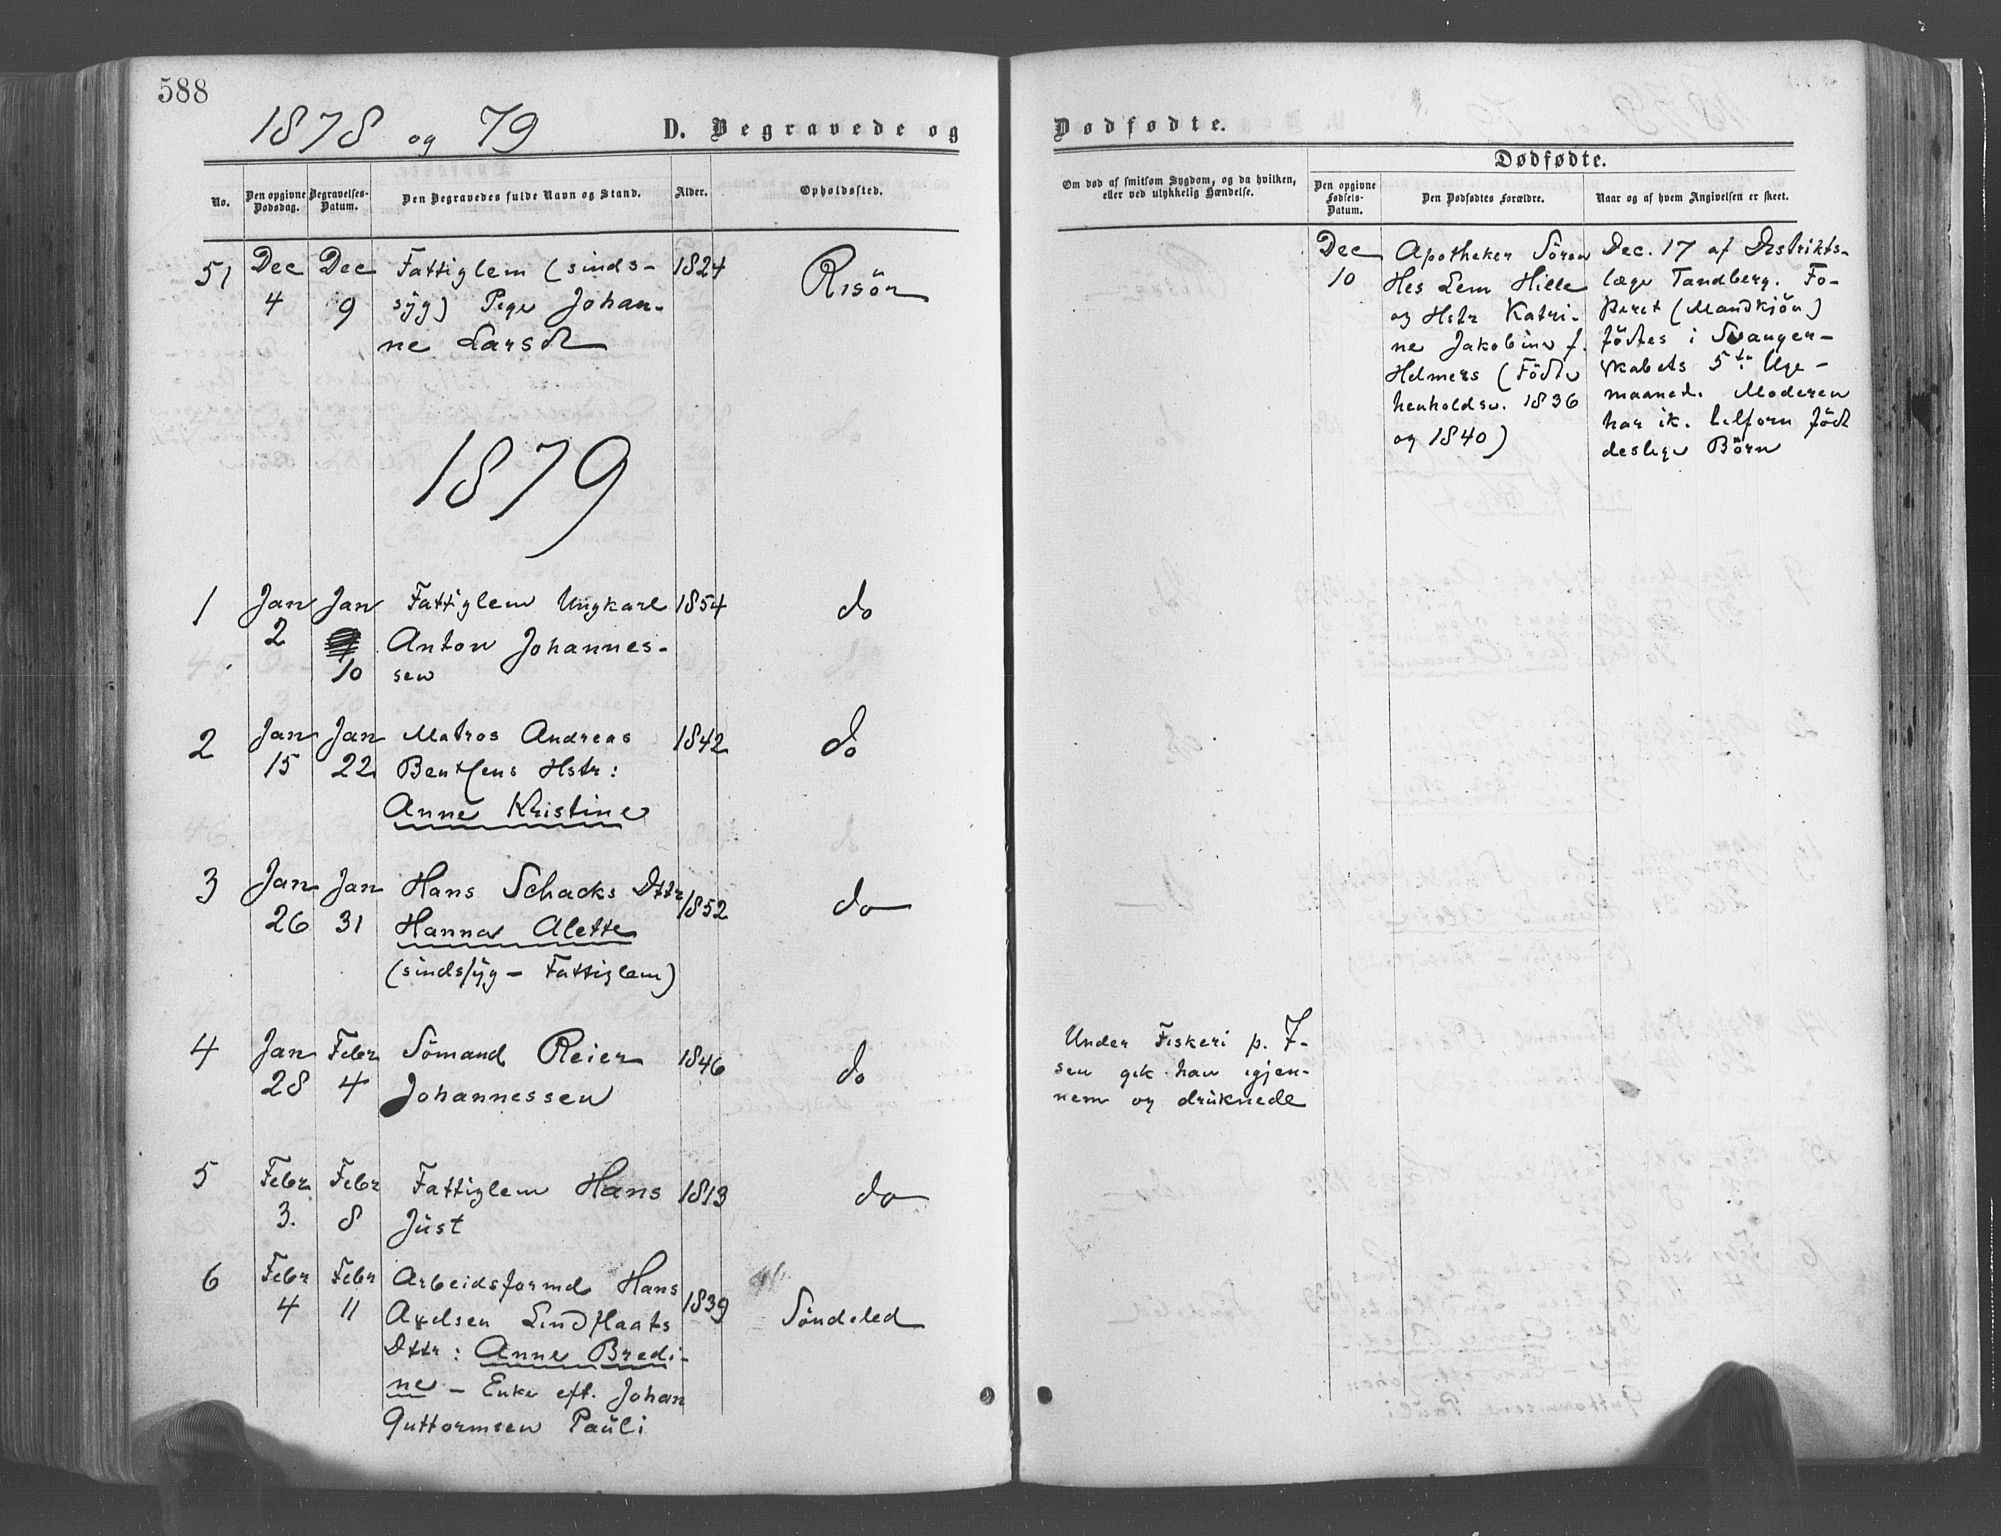 588
1878 og 79
D. Begravede og
Dødfødte.
No.
Den opgivne Dødsdag.
Begravelses-Datum.
Den Begravedes fulde Navn og Stand.
Alder.
Opholdssted.
Om død af smitsom Sygdom, og da hvilken, eller ved ulykkelig Hændelse.
Dødfødte.
Den opgivne Fødsels-Datum.
Den Dødfødtes Forældre.
Naar og af hvem Angivelsen er skeet.
51 Dec 4 Dec 9 Fattiglem (sinds- 1824 Risör
syg) Pige Johan-
ne Larsdt
Dec 10
Apotheker Sören
Hes Lem Hille
og Hstr Katri-
ne Jakobine f.
Helmers (Födte
henholdsv. 1836
og 1840)
Dec. 17 af Distrikts-
læge Tandberg. Fo-
steret (Mandkjön)
födtes i Svanger-
skabets 5te Uge-
maaned. Moderen
har ik. tilforn född
deslige Börn
1879
1 Jan 2 Jan 10 Fattiglem Ungkarl 1854 do
Anton Johannes-
sen
2 Jan 15 Jan 22 Matros Andreas 1842 do
Bentsens Hstr:
Anne Kristine
3 Jan 26 Jan 31 Hans Schacks Dttr 1852 do
Hanna Alette
(sindssyg – Fattiglem)
4 Jan 28 Febr 4 Sömand Reier 1846 do
Johannessen
Under Fiskeri p. I-
sen gik han igjen-
nem og druknede
5 Febr 3. Febr 8 Fattiglem Hans 1813 do
Just
6 Febr 4 Febr 11 Arbeidsformd Hans 1839 Söndeled
Axelsen Lindstaats
Dttr: Anne Bredi-
ne – Enke eft. Johan
Guttormsen Pauli